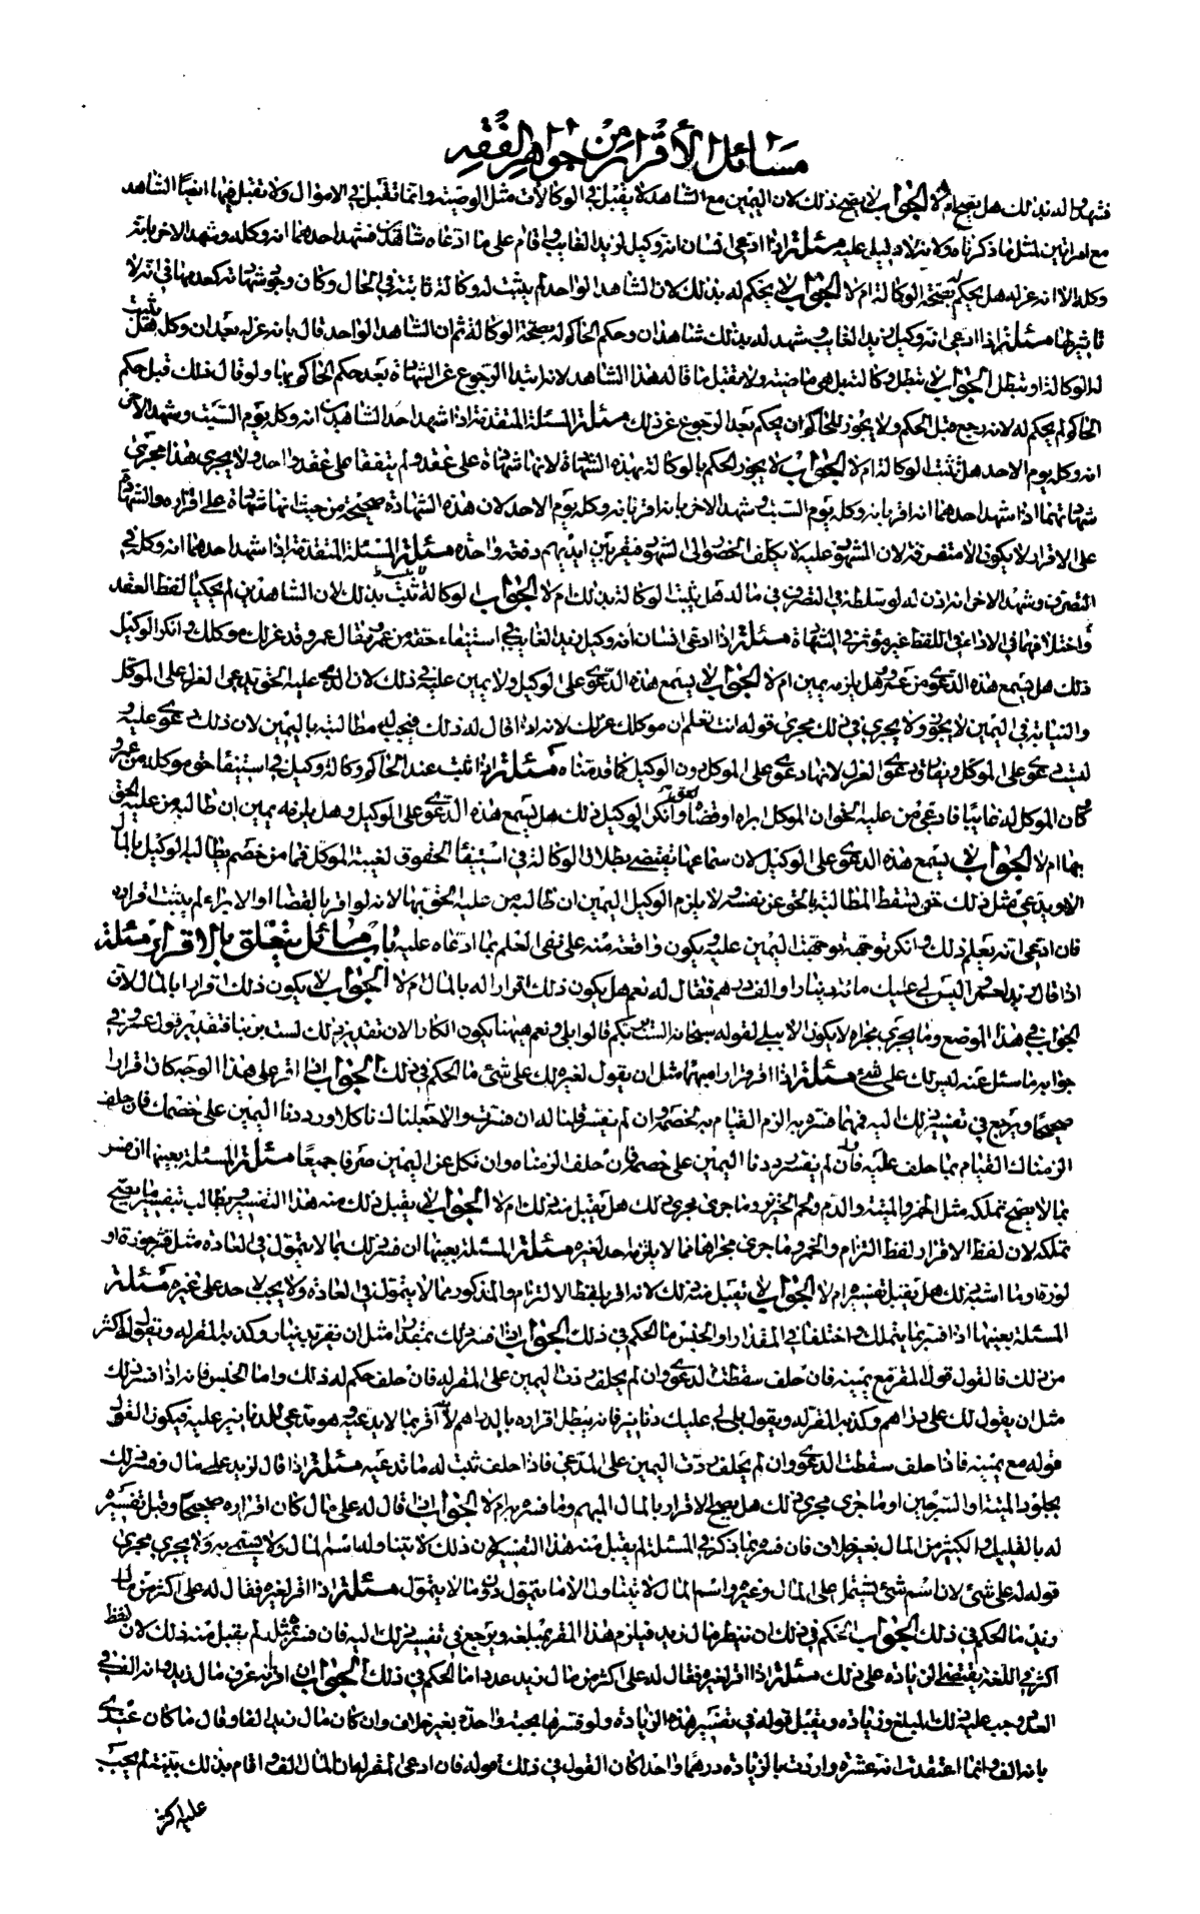 مسائل الأقرار من جواهر الفقه
فشهد له بذلك هل يصح ام لا الجواب لا يصح ذلك لان اليمين مع الشاهد لا يقبل في الوكالات مثل الوصية وانما تقبل في الاموال ولا تقبل فيها ايضا الشاهد
مع امراتين لمثل ما ذكرناه ولانه لا دليل عليه مسئلة اذا ادعى انسان انه وكيل لزيد الغايب واقام على ما ادعاه شاهدين فشهد احدهما انه وكله وشهد الاخر بانه
وكله الا انه عزله هل يحكم بصحة الوكالة ام لا الجواب لا يحكم له بذلك لان الشاهد الواحد لم يثبت له وكالة ثابتة في الحال وكان وجود شهادته كعدمها في انه لا
تاثير لها مسئلة اذا ادعى انه وكيل زيد الغايب وشهد له بذلك شاهدان وحكم الحاكم له بصحة الوكالة ثم ان الشاهد الواحد قال بانه عزله بعد ان وكله هل تثبت
له الوكالة او تبطل الجواب لا تبطل وكالته بل هي ماضية ولا يقبل ما قاله هذا الشاهد لانه ابتدا الرجوع عن الشهادة بعد حكم الحاكم بها ولو قال ذلك قبل حكم
الحاكم لم يحكم له لانه رجع قبل الحكم ولا يجوز للحاكم ان يحكم بعد الرجوع عن ذلك مسئلة المسئلة المتقدمة اذا شهد احد الشاهدين انه وكله يوم السبت وشهد الاخر
انه وكله يوم الاحد هل تثبت الوكالة ام لا الجواب لا يجوز الحكم بالوكالة بهذه الشهادة لانها شهادة على عقد ولم يتفقا على عقد واحد ولا يجري هذا مجرى
شهادتهما اذا شهد احدهما انه اقر بانه وكله يوم السبت وشهد الاخر بانه اقر بانه وكله يوم الاحد لان هذه الشهادة صحيحة من حيث انها شهادة على اقراره والشهادة
على الاقرار لا يكون الا متفرقة لان المشهود عليه لا يكلف الحضور الى الشهود ليقر بين ايديهم دفعة واحدة مسئلة المسئلة المتقدمة اذا شهد احدهما انه وكله في
التصرف وشهد الاخر انه اذن له او سلطه في التصرف في ماله هل يثبت الوكالة بذلك ام لا الجواب الوكالة ثابتة بذلك لان الشاهدين لم يحكيا لفظ العقد
واختلافهما في الاداء في اللفظ غير مؤثر في الشهادة مسئلة اذا ادعى انسان انه وكيل زيد الغايب في استيفاء حقه من عمرو فقال عمرو قد عزلك موكلك وانكر الوكيل
ذلك هل يسمع هذه الدعوى من عمرو وهل يلزمه يمين ام لا الجواب لا يسمع هذه الدعوى على الوكيل ولا يمين عليه في ذلك لان المدعى عليه الحق يدعى العزل على الموكل
والنيابة في اليمين لا يجوز ولا يجري في ذلك مجرى قوله انت تعلم ان موكلك عزلك لانه اذا قال له ذلك فيجب له مطالبته باليمين لان ذلك دعوى عليه و
ليست دعوى على الموكل وتفارق دعوى العزل لانها دعوى على الموكل دون الوكيل كما قدمناه مسئلة اذا ثبت عند الحاكم وكالة وكيل في استيفاء حق موكله من عمرو
وكان الموكل له غائبا فادعى من عليه الحق ان الموكل ابراه او قضاه وانكر الوكيل ذلك هل يسمع هذه الدعوى على الوكيل وهل يلزمه يمين ان طالبه من عليه الحق
بها ام لا الجواب لا يسمع هذه الدعوى على الوكيل لان سماعها يقتضي بطلان الوكالة في استيفاء الحقوق لغيبة الموكل فما من خصم يطالبه الوكيل بالمال
الا ويدعي مثل ذلك حتى يسقط المطالبة بالحق عن نفسه ولا يلزم الوكيل اليمين ان طالبه من عليه الحق بها لانه لو اقر بالقضا او الابراء لم يثبت اقراره
فان ادعى انه يعلم ذلك وانكر توجهت اليمين عليه ويكون واقعة منه على نفي العلم بما ادعاه عليه باب مسائل يتعلق بالاقرار مسئلة
اذا قال زيد لعمرو اليس لي عليك مائة دينار او الف درهم فقال له نعم هل يكون ذلك اقرارا له بالمال ام لا الجواب لا يكون ذلك اقرارا بالمال لان
الجواب في هذا الموضع وما يجري مجراه لا يكون الا ببلى لقوله سبحانه الست بربكم قالوا بلى ونعم هيهنا يكون انكارا لان تقدير ذلك لست بربنا فتقدير قول عمرو في
جوابه ما سئل عنه ليس لك علي شئ مسئلة اذا اقر اقرارا مبهما مثل ان يقول لغيره لك علي شئ ما الحكم في ذلك الجواب اذا اقر على هذا الوجه كان اقرارا
صحيحا ويرجع في تفسير ذلك اليه فمهما فسره به الزم القيام به لخصمه وان لم يفسر قلنا له ان فسرت والا جعلناك ناكلا ورددنا اليمين على خصمك فان حلف
الزمناك القيام بما حلف عليه فان لم يفسر رددنا اليمين على خصمه فان حلف الزمناه وان نكل عن اليمين صرفا جميعا مسئلة المسئلة بعينها ان فسر
بما لا يصح تملكه مثل الخمر والميتة والدم ولحم الخنزير وما جرى مجرى ذلك هل يقبل منه ذلك ام لا الجواب لا يقبل ذلك منه هذا التفسير ويطالب بتفسير ما يصح
تملكه لان لفظ الاقرار لفظ التزام والخمر وما جرى مجراها فما لا يلزم احد لغيره مسئلة المسئلة بعينها ان فسر ذلك بما لا يتمول في العادة مثل قشر جوزة او
لوزة وما اشبه ذلك هل يقبل تفسيره ام لا الجواب لا يقبل منه ذلك لانه اقر بلفظ الالتزام والمذكور مما لا يتمول في العادة ولا يجب لاحد على غيره مسئلة
المسئلة بعينها اذا فسر بما يتملك واختلفا في المقدار او الجنس ما الحكم في ذلك الجواب اذا فسر ذلك بمقدار مثل ان يقر بدينار وكذبه المقر له ويقول لي اكثر
من ذلك فالقول قول المقر مع يمينه فان حلف سقطت الدعوى وان لم يحلف ردت اليمين على المقر له فان حلف حكم له ذلك واما الجنس فانه اذا فسر ذلك
مثل ان يقول لك علي دراهم وكذبه المقر له ويقول بل لي عليك دنانير فانه يبطل اقراره بالدراهم لانه اقر بما لا يدعيه وهو يدعي الدنانير عليه فيكون القول
قوله مع يمينه فاذا حلف سقطت الدعوى وان لم يحلف ردت اليمين على المدعي فاذا حلف ثبت له ما يدعيه مسئلة اذا قال لزيد علي مال وفسر ذلك
بجلود الميتة او السرجين او ما جرى مجرى ذلك هل يصح الاقرار بالمال المبهم وما فسره به ام لا الجواب اذا قال له علي مال كان اقراره صحيحا وقبل تفسيره
له بالقليل والكثير من المال بغير خلاف فان فسره بما ذكر في المسئلة لم يقبل منه هذا التفسير لان ذلك لا يتناوله اسم المال ولا يسمى به ولا يجري مجرى
قوله له علي شئ لان اسم شئ يشتمل على المال وغيره واسم المال لا يتناول الا ما يتمول دون ما لا يتمول مسئلة اذا اقر لغيره فقال له علي اكثر من مال
زيد ما الحكم في ذلك الجواب الحكم في ذلك ان ننظر مال زيد فيلزم هذا المقر بمبلغه ويرجع في تفسير ذلك اليه فان فسره بمثله لم يقبل منه ذلك لان لفظ
اكثر في اللغة يقتضى الزيادة على ذلك مسئلة اذا اقر لغيره فقال له علي اكثر من مال زيد عددا ما الحكم في ذلك الجواب ان اقر انه عرف مال زيد وانه الف في
العدد وجب عليه ذلك المبلغ وزيادة ويقبل قوله في تفسير هذه الزيادة ولو فسرها بحبة واحدة بغير خلاف وان كان مال زيد الفا وقال ما كان عندي
بانه الف وانما اعتقدت انه عشرة واردت بالزيادة درهما واحدا كان القول في ذلك قوله فان ادعى المقر له ان المال الف واقام بذلك بينة لم يجب
عليه اكثر